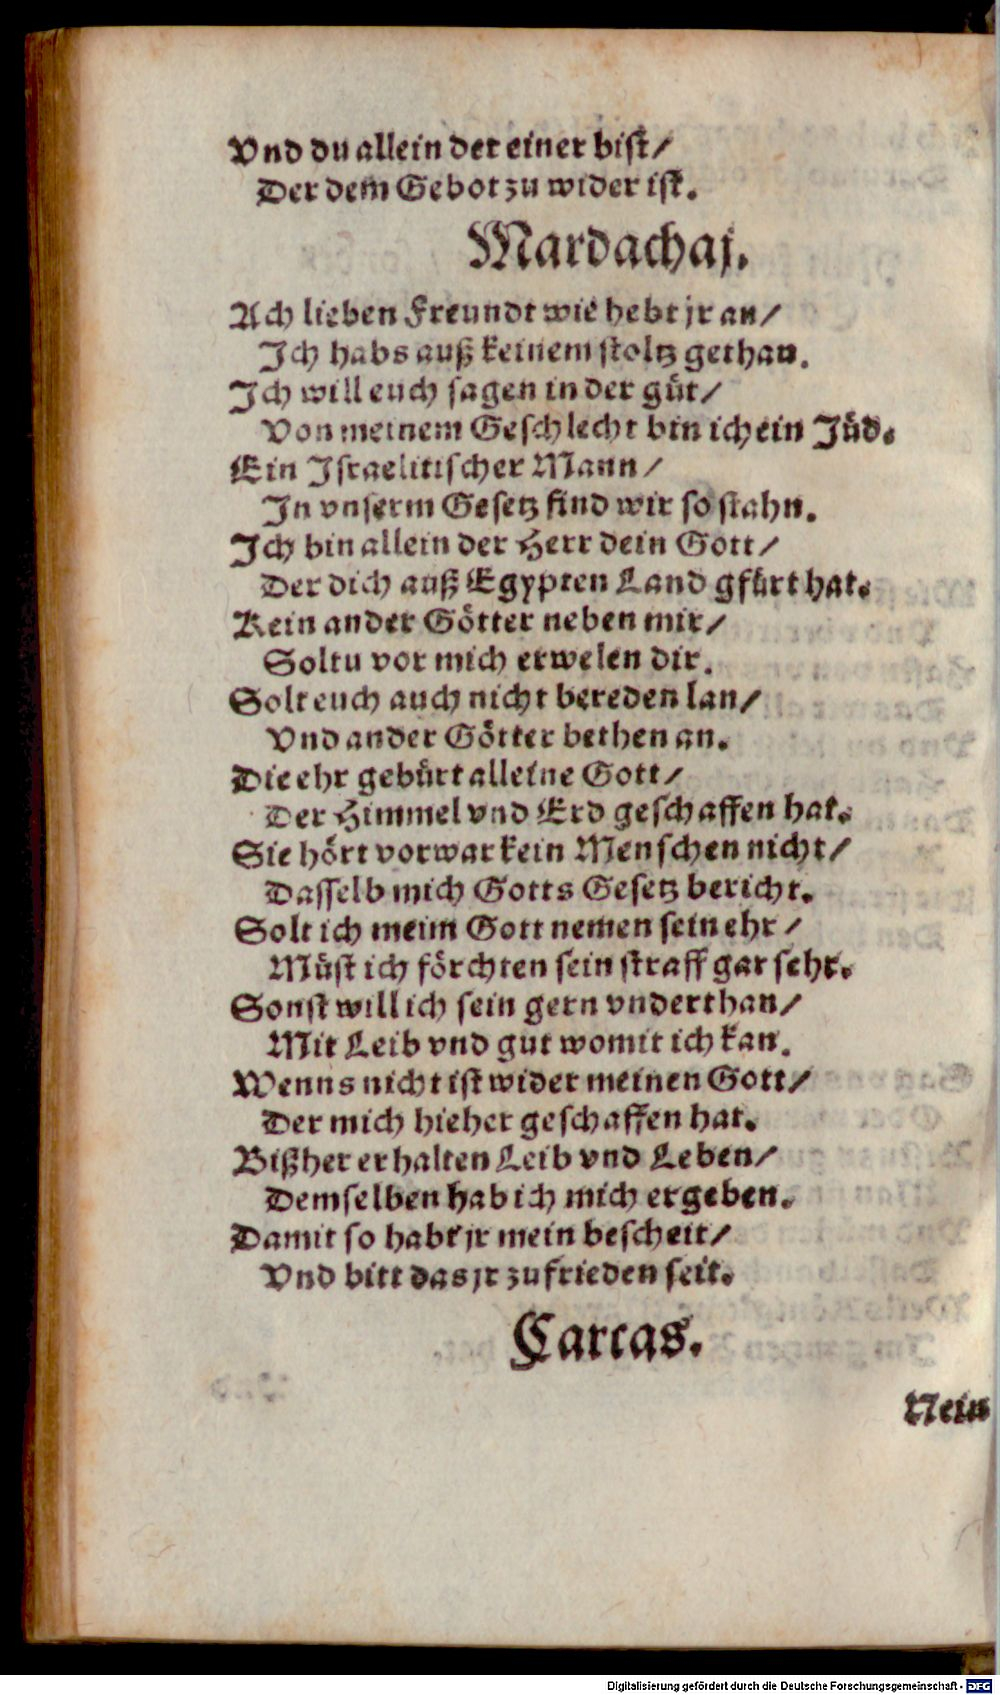 Vnd du allein der einer bist/
Der dem Gebot zu wider ist.
Mardachaj.
Ach lieben Freundt wie hebt jr an/
Ich habs auß keinem stoltz gethan.
Ich will euch sagen in der gût/
Von meinem Geschlecht bin ich ein Jûd.
Ein Israelitischer Mann/
In vnserm Gesetz find wir so stahn.
Ich bin allein der Herr dein Gott/
Der dich auß Egypten Land gfûrt hat.
Kein ander Götter neben mir/
Soltu vor mich erwelen dir.
Solt euch auch nicht bereden lan/
Vnd ander Götter bethen an.
Die ehr gebûrt alleine Gott/
Der Himmel vnd Erd geschaffen hat.
Sie hört vorwar kein Menschen nicht/
Dasselb mich Gotts Gesetz bericht.
Solt ich meim Gott nemen sein ehr/
Mûst ich förchten sein straff gar sehr.
Sonst will ich sein gern vnderthan/
Mit Leib vnd gut womit ich kan.
Wenns nicht ist wider meinen Gott/
Der mich hieher geschaffen hat.
Bißher erhalten Leib vnd Leben/
Demselben hab ich mich ergeben.
Damit so habt jr mein bescheit/
Vnd bitt das jr zu frieden seit.
Carcas.
Nein
Digitalisierung gefördert durch die Deutsche Forschungsgemeinschaft - DFG